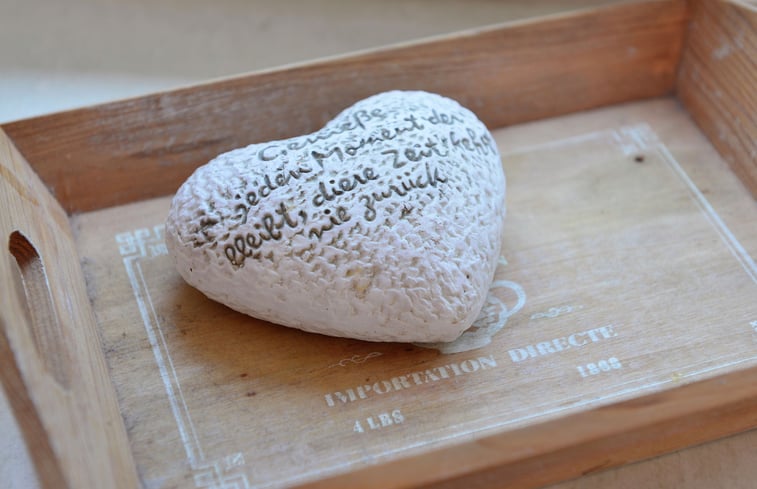 Genieße
jeden Moment der
bleibt, diese Zeit kehrt
nie zurück
IMPORTATION DIRECTE
4 LBS
1868